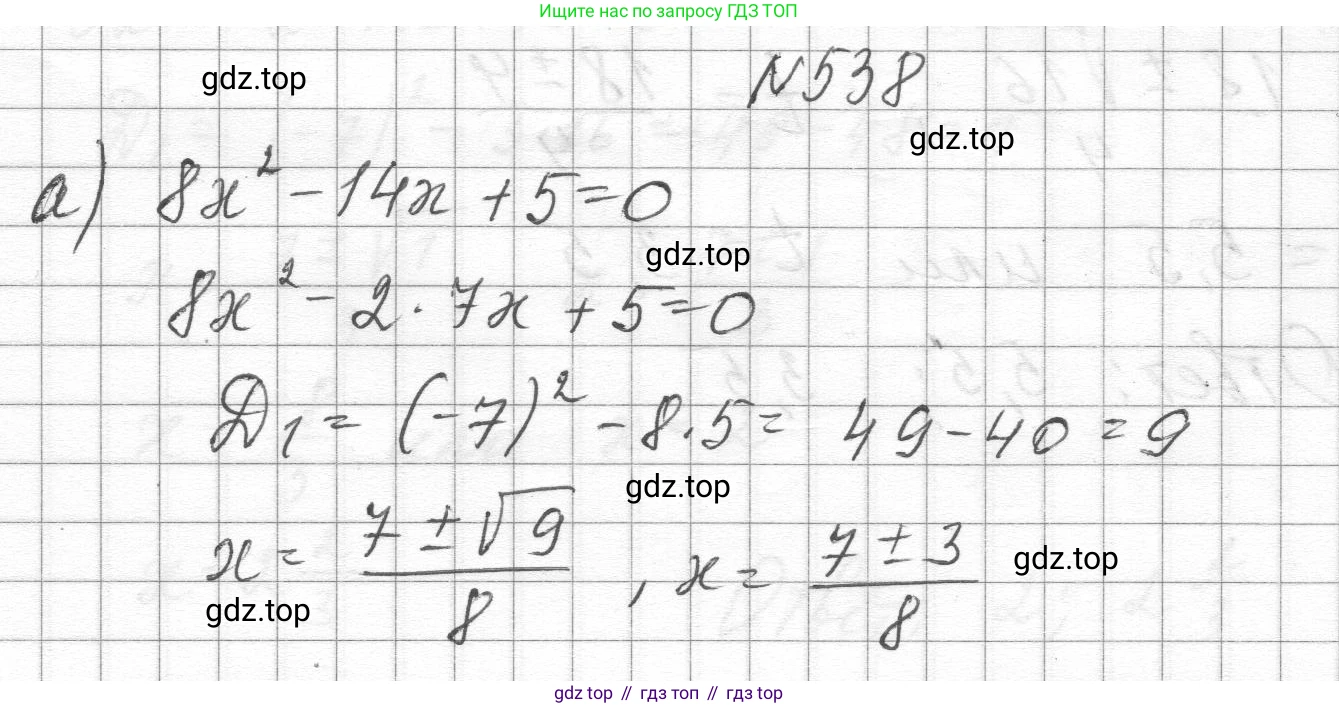 Ищите нас по запросу ГДЗ ТОП
gdz.top
N538
gdz.top
а) 8x² - 14x + 5 = 0
gdz.top
8x² - 2 · 7x + 5 = 0
D₁ = (-7)² - 8 · 5 = 49 - 40 = 9
gdz.top
x = (7 ± √9)/8 , x = (7 ± 3)/8
gdz.top
gdz.top
gdz top // гдз топ // гдз top